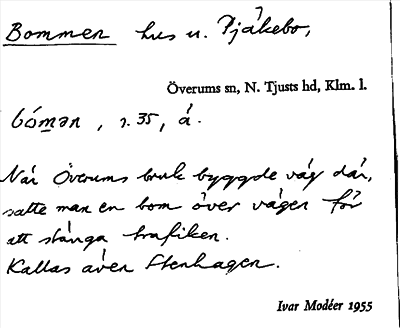 Bommen hus u. Pjåkebo,
Överums sn, N. Tjusts hd, Klm. l.
bómən, s. 35, å.
När Överums bruk byggde väg där,
satte man en bom över vägen för
att stänga trafiken.
Kallas även Stenhagen.
Ivar Modéer 1955